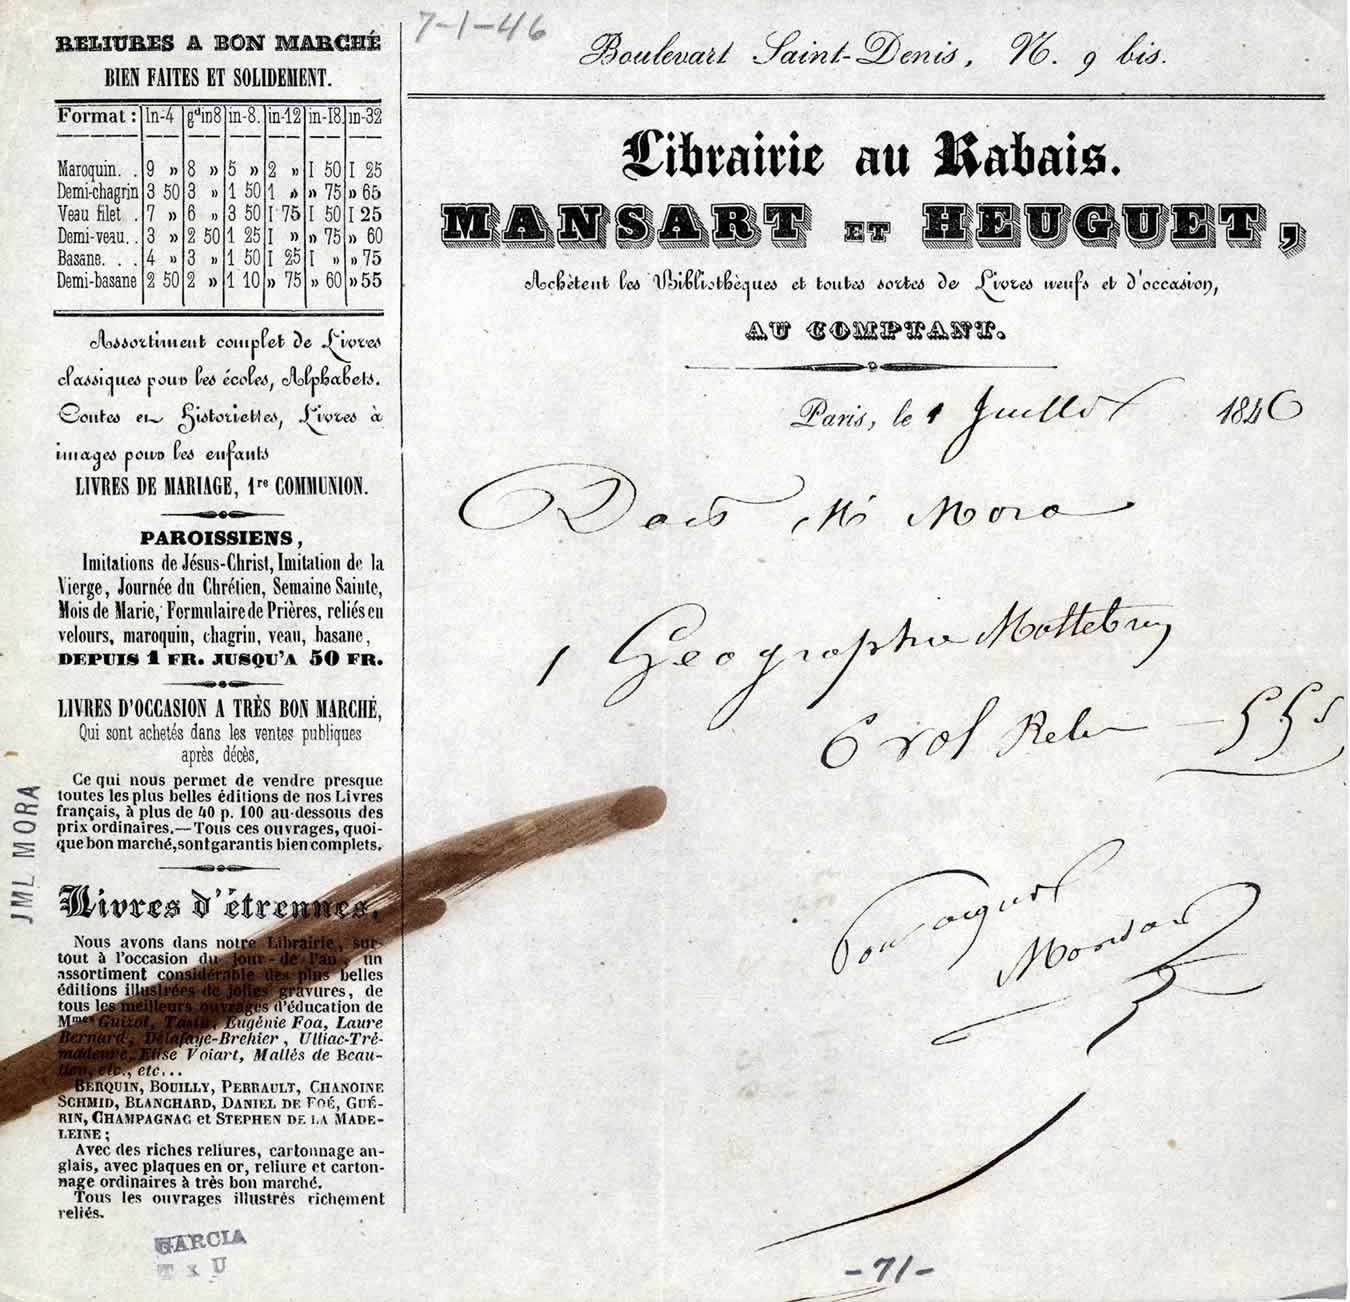 7-1-46
RELIURES A BON MARCHÉ
BIEN FAITES ET SOLIDEMENT.
Format : in-4 gd in8 in-8. in-12 in-18. in-32
Maroquin. . 9 » 8 » 5 » 2 » 1 50 1 25
Demi-chagrin 3 50 3 » 1 50 1 » » 75 » 65
Veau filet . 7 » 6 » 3 50 1 75 1 50 1 25
Demi-veau. . 3 » 2 50 1 25 1 » » 75 » 60
Basane. . . 4 » 3 » 1 50 1 25 1 » » 75
Demi-basane 2 50 2 » 1 10 » 75 » 60 » 55
Assortiment complet de Livres
classiques pour les écoles, Alphabets.
Contes et Historiettes, Livres à
images pour les enfants
LIVRES DE MARIAGE, 1re COMMUNION.
PAROISSIENS,
Imitations de Jésus-Christ, Imitation de la
Vierge, Journée du Chrétien, Semaine Sainte,
Mois de Marie, Formulaire de Prières, reliés en
velours, maroquin, chagrin, veau, basane,
DEPUIS 1 FR. JUSQU'A 50 FR.
LIVRES D'OCCASION A TRÈS BON MARCHÉ,
Qui sont achetés dans les ventes publiques
après décès,
Ce qui nous permet de vendre presque
toutes les plus belles éditions de nos Livres
français, à plus de 40 p. 100 au-dessous des
prix ordinaires.—Tous ces ouvrages, quoi-
que bon marché, sont garantis bien complets.
Livres d'étrennes.
Nous avons dans notre Librairie, sur-
tout à l'occasion du jour-de-l'an, un
assortiment considérable des plus belles
éditions illustrées de jolies gravures, de
tous les meilleurs ouvrages d'éducation de
Mmes Guizot, Tastu, Eugénie Foa, Laure
Bernard, Delafaye-Brehier, Ulliac-Tré-
madeure, Elise Voiart, Mallés de Beau-
lieu, etc., etc...
BERQUIN, BOUILLY, PERRAULT, CHANOINE
SCHMID, BLANCHARD, DANIEL DE FOÉ, GUÉ-
RIN, CHAMPAGNAC et STEPHEN DE LA MADE-
LEINE ;
Avec des riches reliures, cartonnage an-
glais, avec plaques en or, reliure et carton-
nage ordinaires à très bon marché.
Tous les ouvrages illustrés richement
reliés.
JML MORA
GARCIA
T x U
Boulevart Saint-Denis, N. 9 bis.
Librairie au Rabais.
MANSART ET HEUGUET,
Achètent les Bibliothèques et toutes sortes de Livres neufs et d'occasion,
AU COMPTANT.
Paris, le 1 Juillet 1846
Doit Mr Mora
1 Geographie Maltebrun
6 vol Relie — 55f
Pour acquit
Mansart
-71-